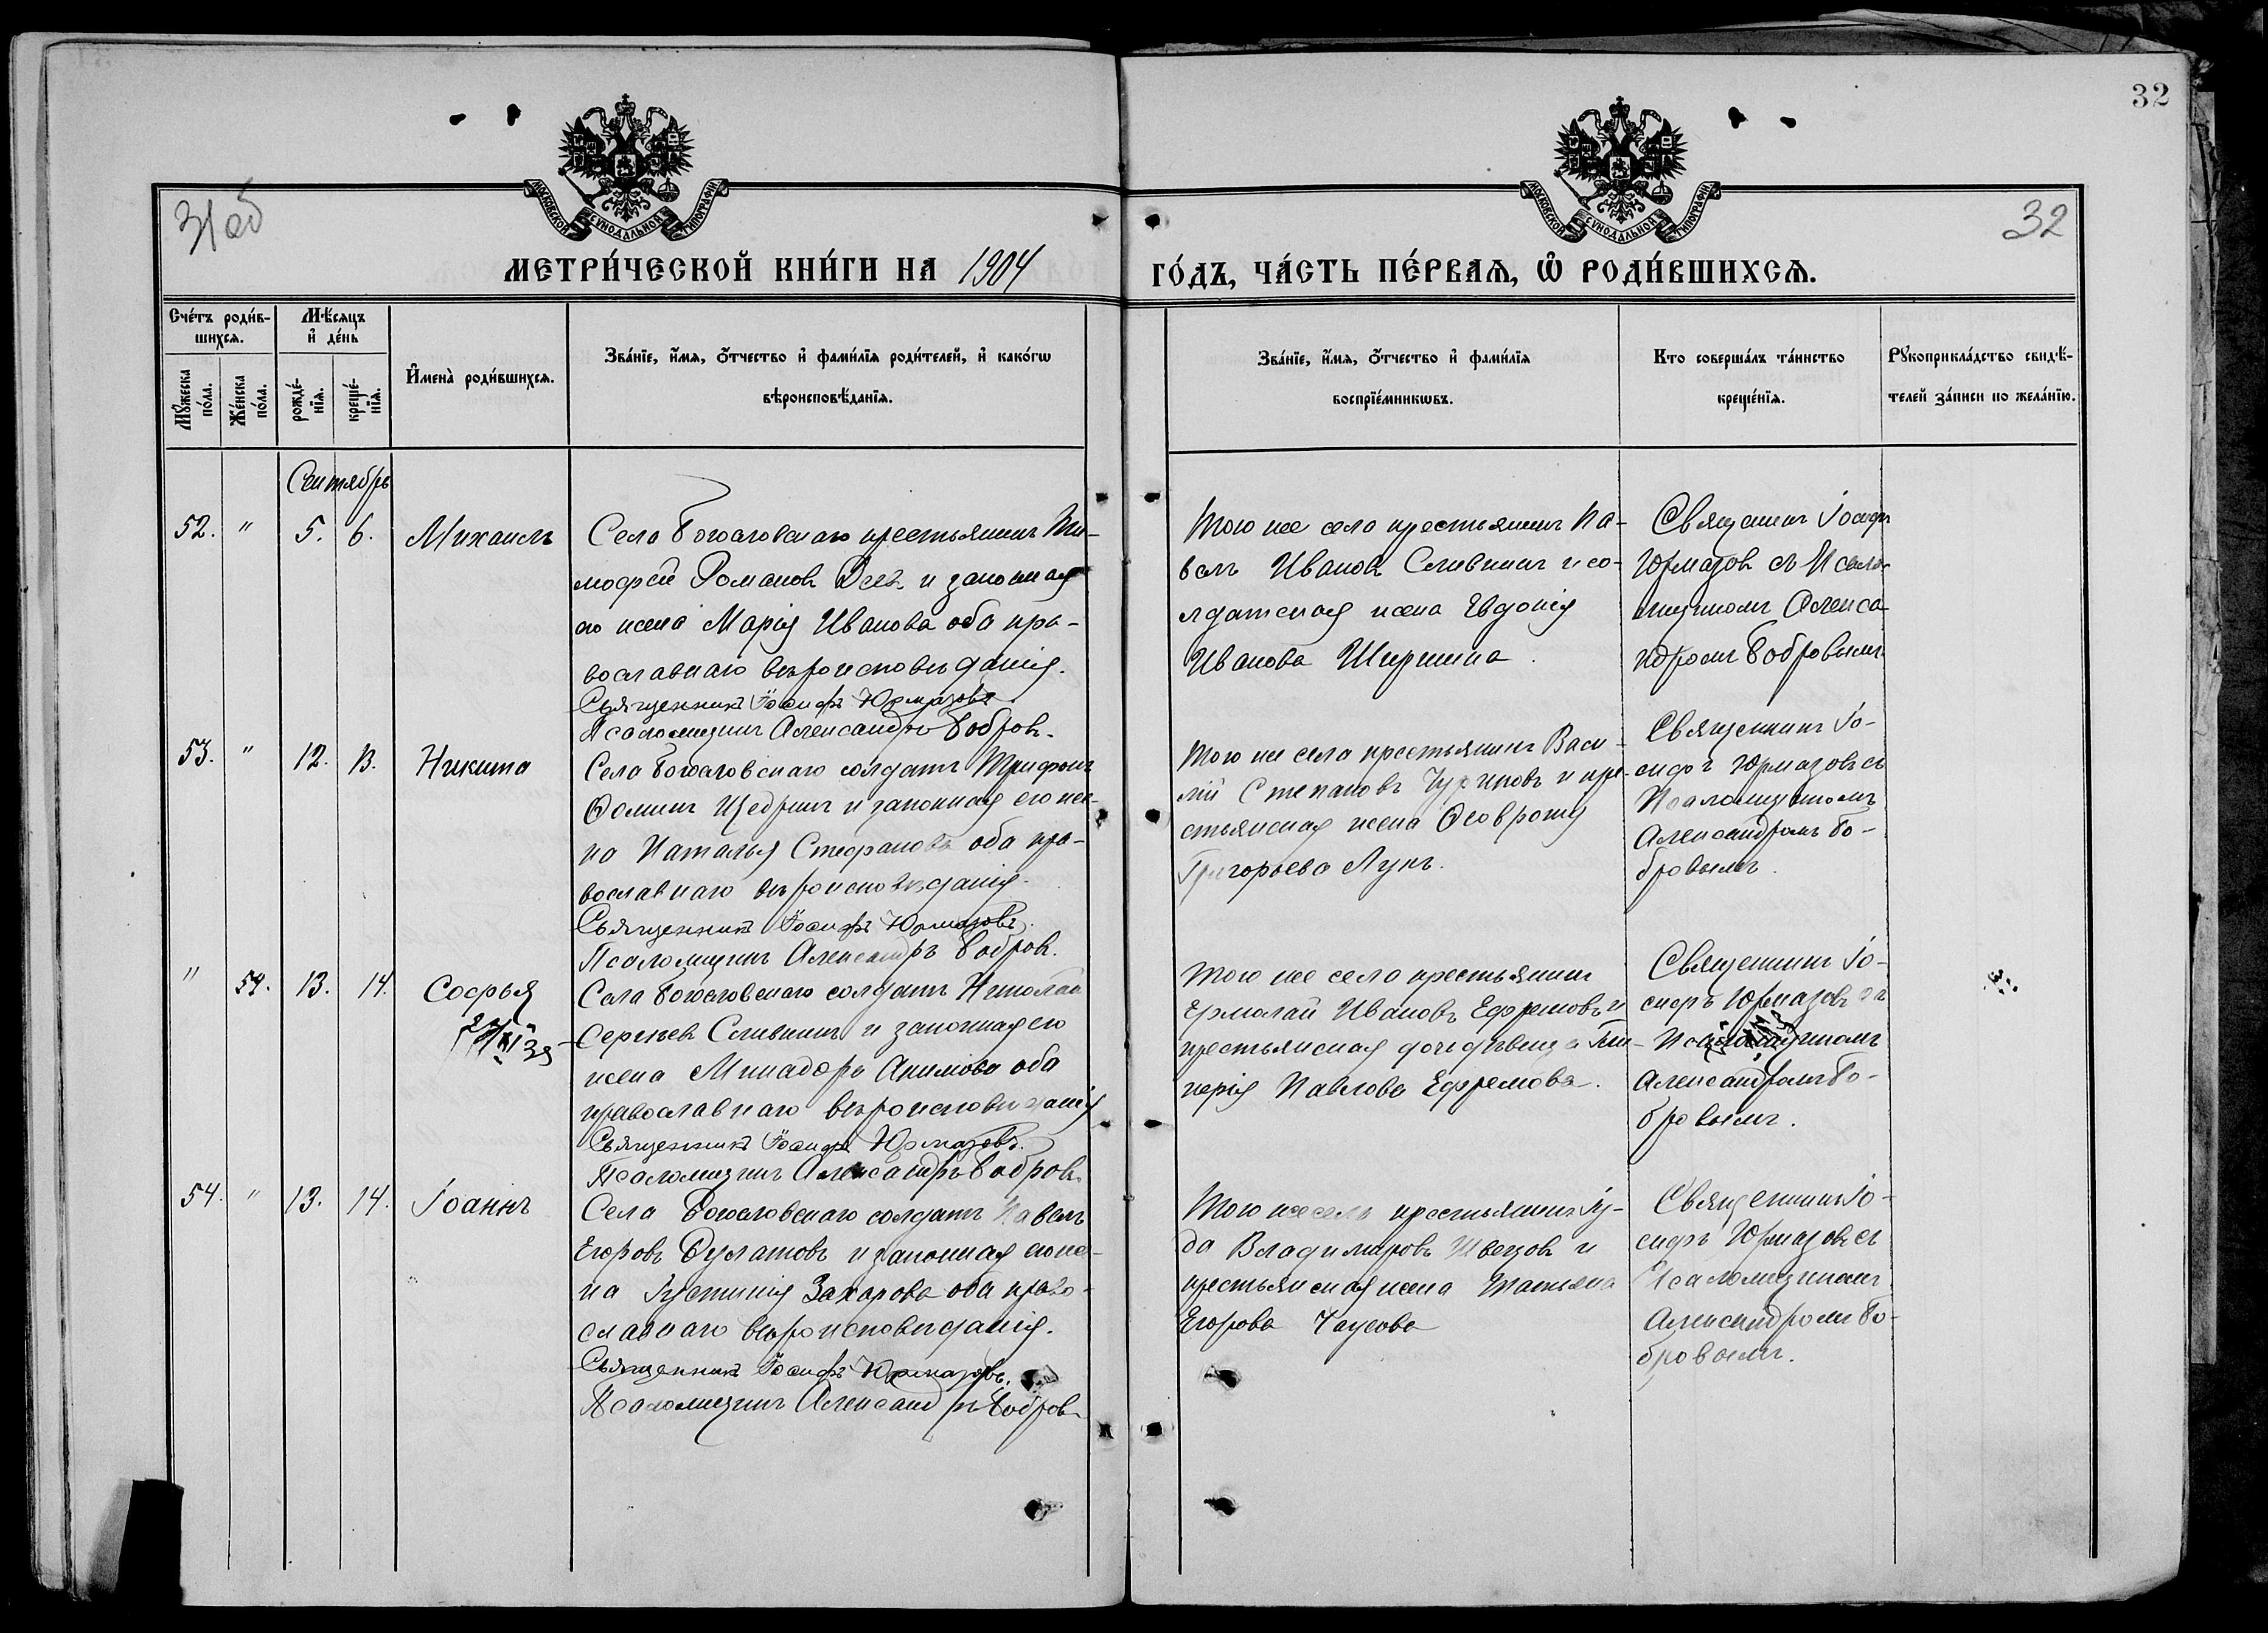 32
31 об
32
МОСКОВСКОЙ СѴНОДАЛЬНОЙ ТИПОГРАФІИ
МОСКОВСКОЙ СѴНОДАЛЬНОЙ ТИПОГРАФІИ
МЕТРИ́ЧЕСКОЙ КНИ́ГИ НА 1904
ГО́ДЪ, ЧА́СТЬ ПЕ́РВАѦ, Ѡ҆ РОДИ́ВШИХСѦ.
Сче́тъ роди́в-
шихсѧ.
Мꙋ́жеска
по́ла.
Же́нска
по́ла.
Мѣ́сѧцъ
и҆ де́нь
рожде́-
нїѧ.
креще́-
нїѧ.
И҆мена̀ роди́вшихсѧ.
Зва́нїе, и҆́мѧ, ѻ҆́тчество и҆ фами́лїѧ роди́телей, и҆ како́гѡ
вѣроисповѣ́данїѧ.
Зва́нїе, и҆́мѧ, ѻ҆́тчество и҆ фами́лїѧ
воспрїе́мникѡвъ.
Кто соверша́лъ та́инство
креще́нїѧ.
Рꙋкоприкла́дство свидѣ́-
телей за́писи по жела́нїю.
Сентябрь
52. " 5. 6. Михаилъ
Села Богословскаго крестьянинъ Ти-
мофей Романовъ и законная
его жена Марія Иванова оба пра-
вославнаго вѣроисповѣданія.
Священникъ Іосифъ Юрмазовъ
Псаломщикъ Александръ Бобровъ.
Того же села крестьянинъ Па-
велъ Ивановъ Сливкинъ и со-
лдатская жена Евдокія
Иванова Ширшина.
Священникъ Іосифъ
Юрмазовъ съ Псало-
мщикомъ Алекса-
ндромъ Бобровымъ.
53. " 12. 13. Никита
Села Богословскаго солдатъ Трифонъ
Ѳоминъ Щедринъ и законная его же-
на Наталья Стефанова оба пра-
вославнаго вѣроисповѣданія.
Священникъ Іосифъ Юрмазовъ.
Псаломщикъ Александръ Бобровъ.
Того же села крестьянинъ Васи-
лій Степановъ и кре-
стьянская жена
Григорьева
Священникъ Іо-
сифъ Юрмазовъ съ
Псаломщикомъ
Александромъ Бо-
бровымъ.
" 54. 13. 14. Софья
Села Богословскаго солдатъ Николай
Сергѣевъ Сливкинъ и законная его
жена Минадора Акимова оба
православнаго вѣроисповѣданія
Священникъ Іосифъ Юрмазовъ.
Псаломщикъ Александръ Бобровъ.
Того же села крестьянинъ
Ермолай Ивановъ Ефремовъ и
крестьянская дочь дѣвица Гли-
керія Павлова Ефремова.
Священникъ Іо-
сифъ Юрмазовъ съ
Псаломщикомъ
Александромъ Бо-
бровымъ.
54. " 13. 14. Іоаннъ
Села Богословскаго солдатъ Павелъ
Егоровъ Булатовъ и законная его же-
на Іустинія Захарова оба право-
славнаго вѣроисповѣданія.
Священникъ Іосифъ Юрмазовъ.
Псаломщикъ Александръ Бобровъ
Того же села крестьянинъ Іу-
да Владимировъ Швецовъ и
крестьянская жена Татьяна
Егорова Чаусова
Священникъ Іо-
сифъ Юрмазовъ съ
Псаломщикомъ
Александромъ Бо-
бровымъ.